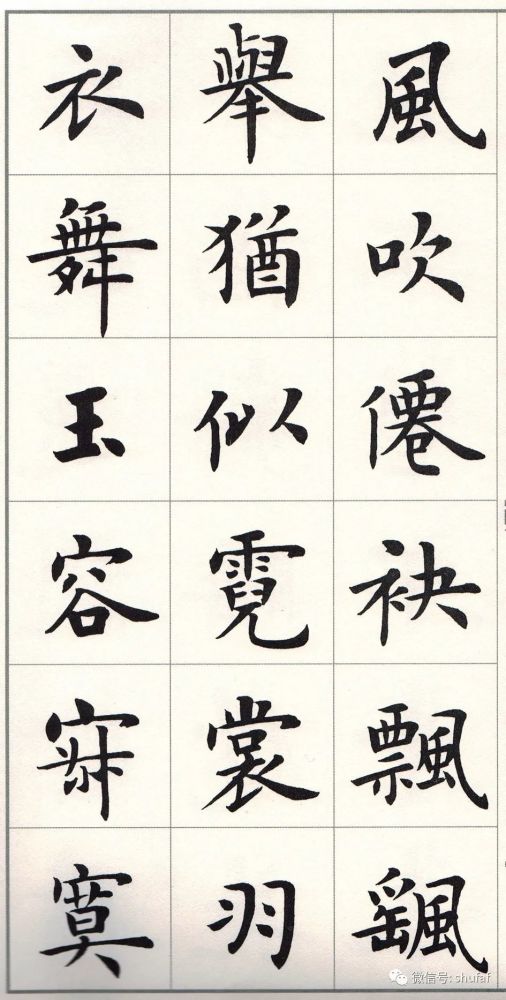 風吹僊袂飄飖
舉猶似霓裳羽
衣舞玉容寂寞
微信号: shufaf